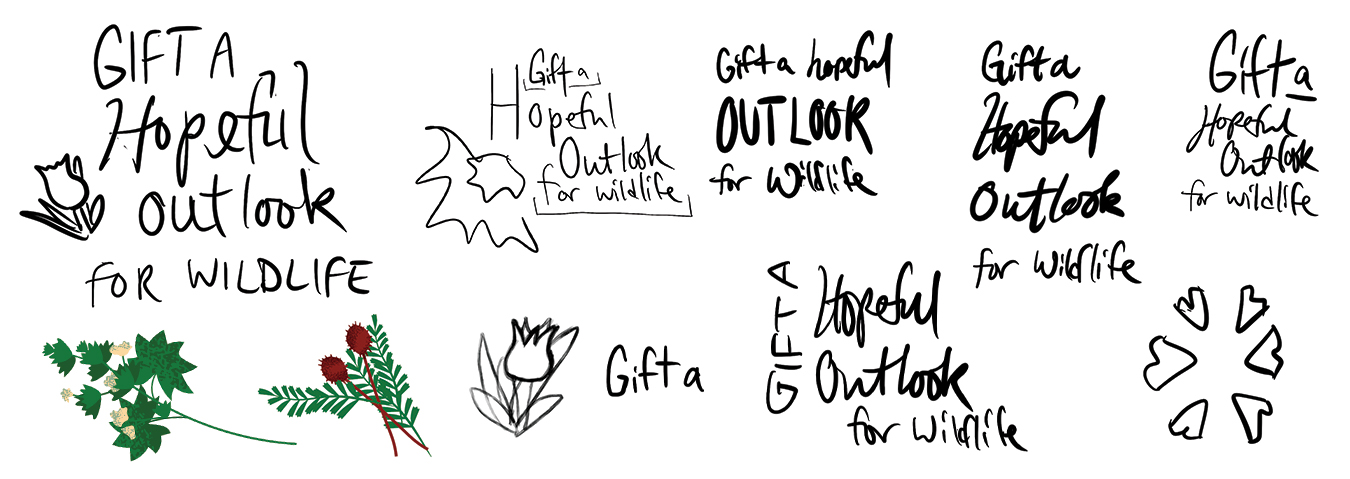 GIFT A
Hopeful
outlook
FOR WILDLIFE
Gift a
Hopeful
Outlook
for wildlife
Gift a hopeful
OUTLOOK
for Wildlife
Gift a
Hopeful
Outlook
for Wildlife
Gift a
Hopeful
Outlook
for wildlife
Gift a
GIFT A
Hopeful
Outlook
for Wildlife